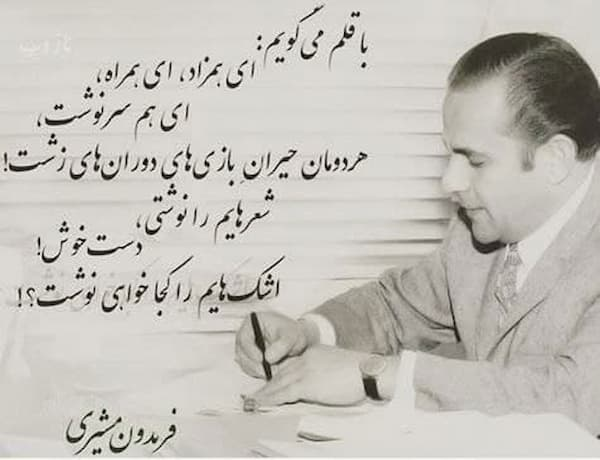 با قلم می‌گویم:
ای همزاد، ای همراه،
ای هم سرنوشت،
هردومان حیرانِ بازی‌های دوران‌های زشت!
شعرهایم را نوشتی،
دست خوش!
اشک‌هایم را کجا خواهی نوشت؟!
فریدون مشیری